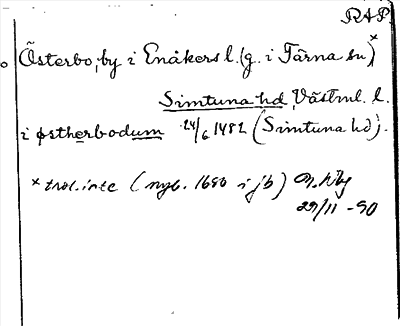 RAP.
Österbo, by i Enåkers l. (g. i Tärna sn)ˣ
Simtuna hd, Västml. l.
i østherbodum 24/6 1482 (Simtuna hd).
× trol. inte (nyb. 1680 i jb)
29/11 -90